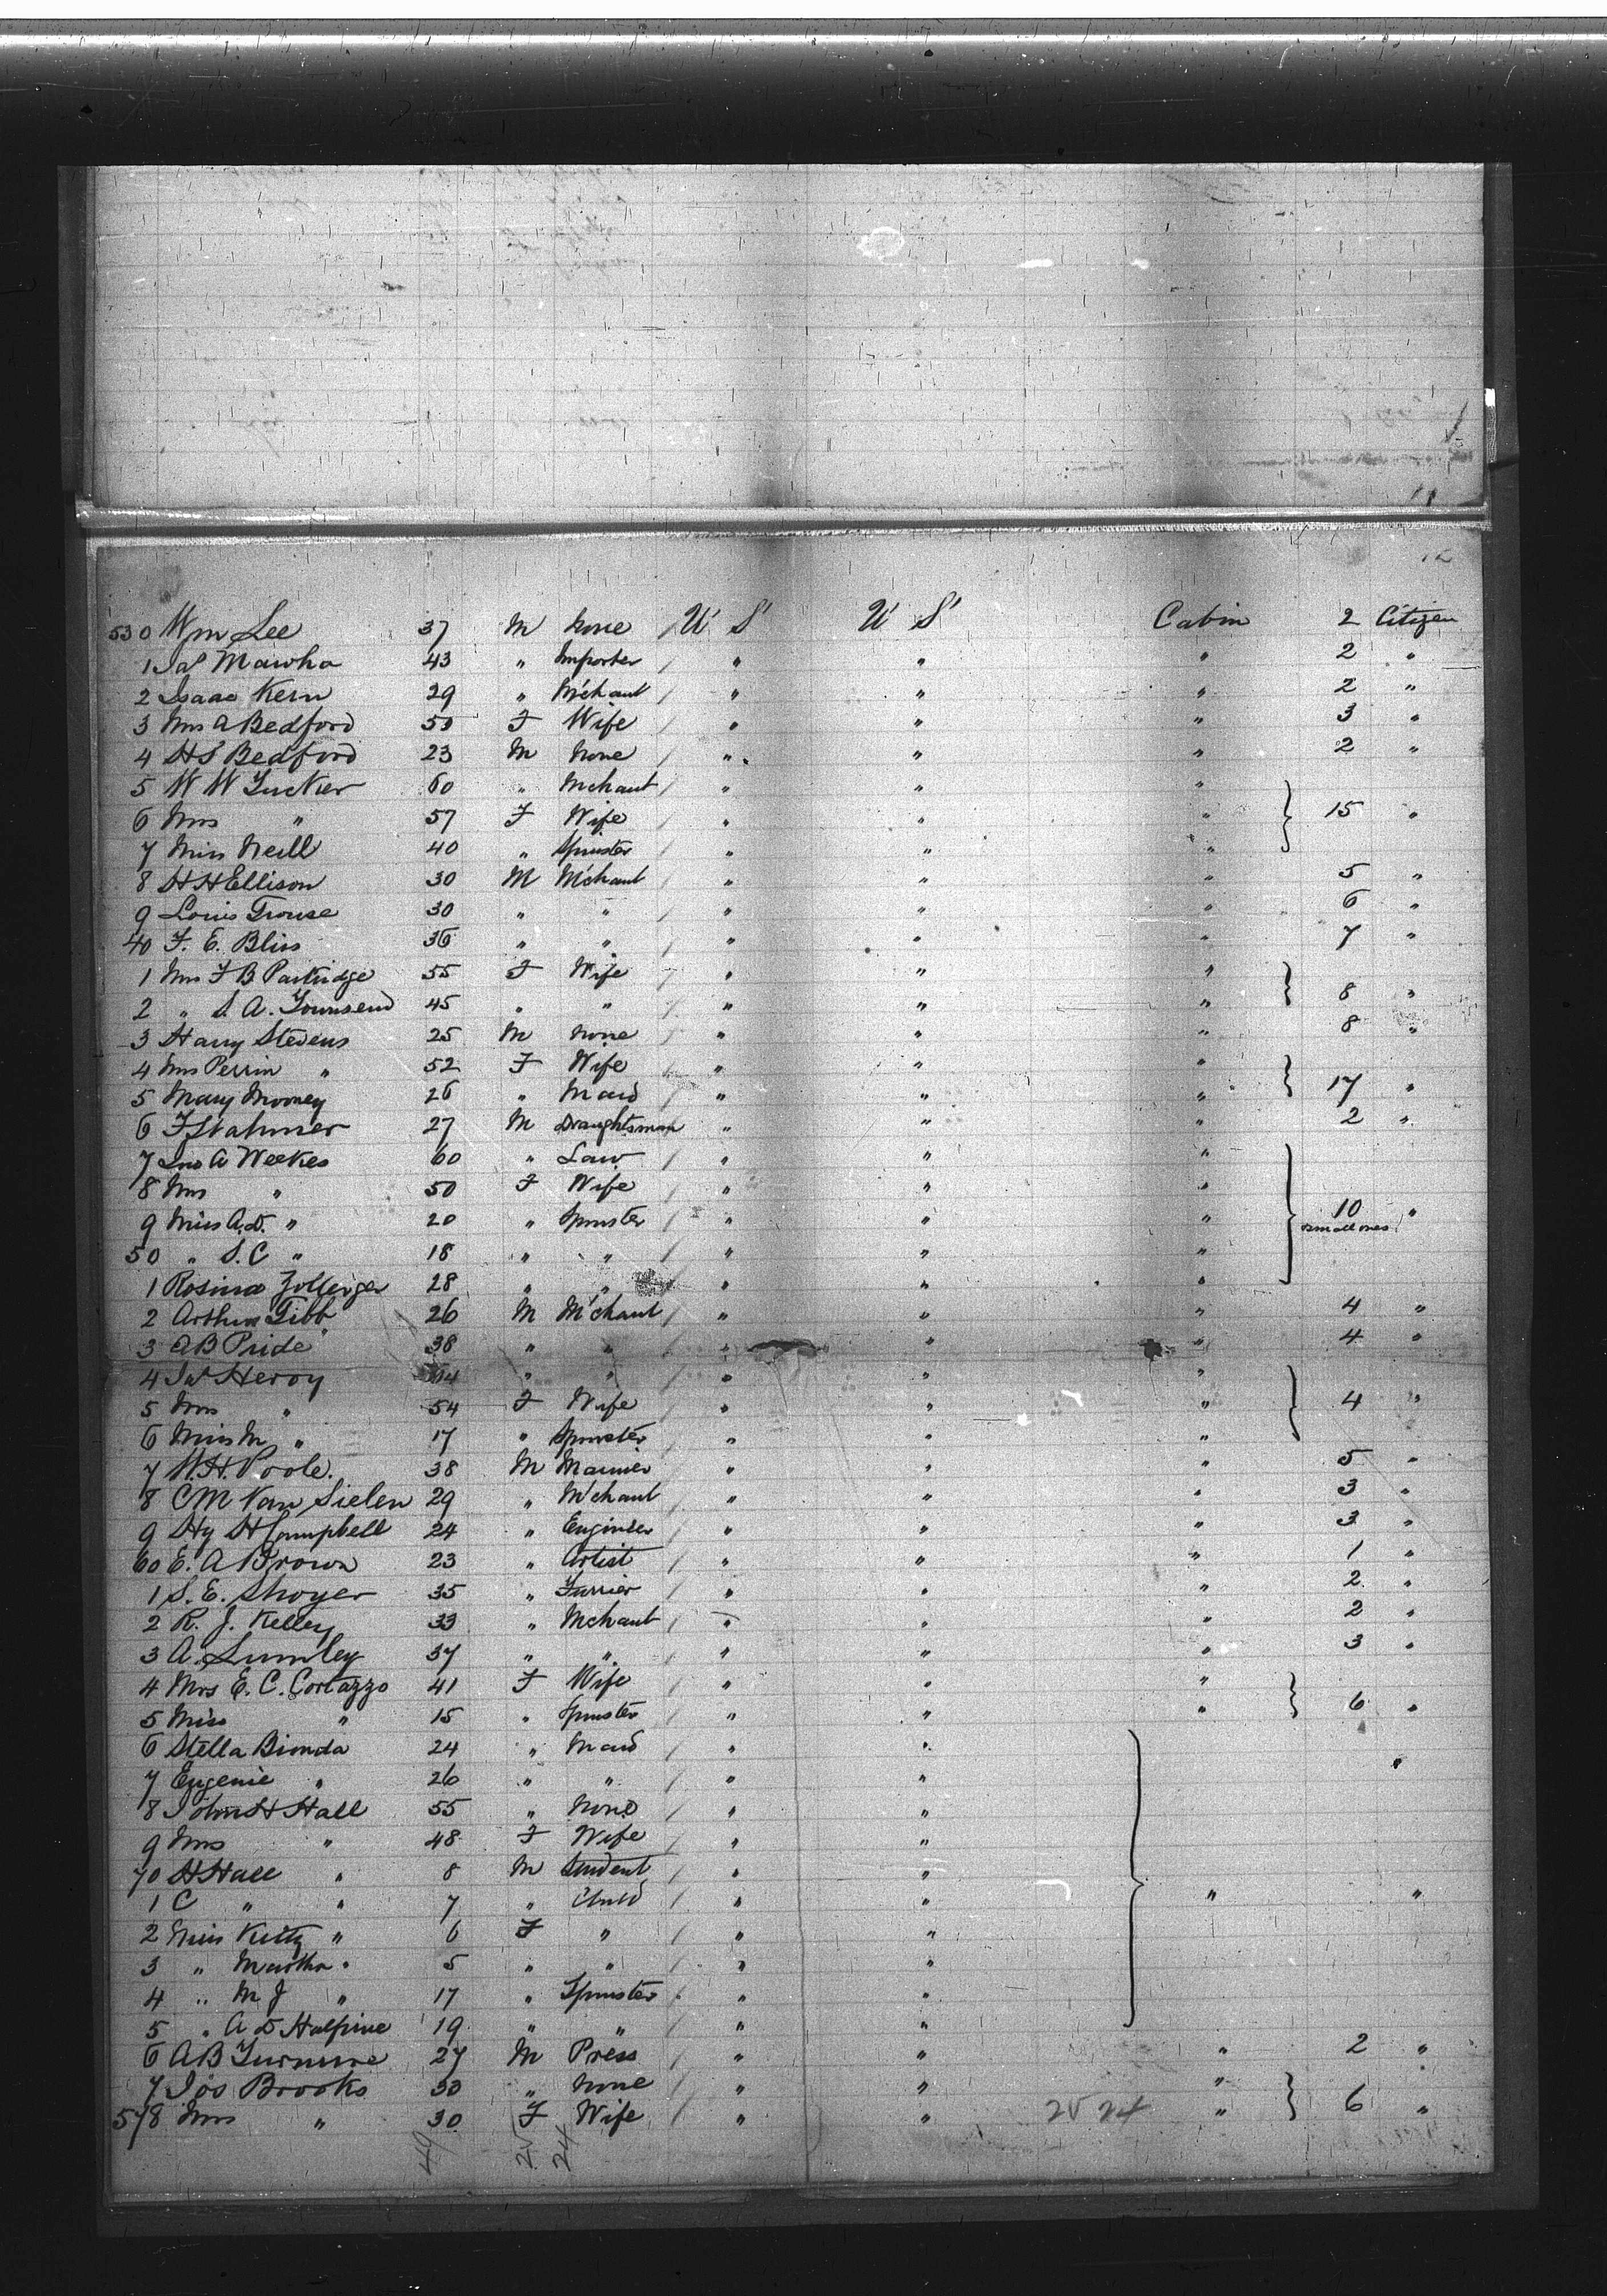 12
530 Wm Lee 37 M None / U S U S Cabin 2 Citizen
1 Jas Mawha 43 " Importer / " " " 2 "
2 Isaac Kern 29 " M'chant / " " " 2 "
3 Mrs A Bedford 53 F Wife / " " " 3 "
4 H S Bedford 23 M None / " " " 2 "
5 W W Tucker 60 " Mchant / " " "
6 Mrs " 57 F Wife / " " " 15 "
7 Miss Neill 40 " Spinster / " " "
8 H H Ellison 30 M M'chant / " " " 5 "
9 Louis 30 " " / " " " 6 "
40 F. E. Bliss 36 " " / " " " 7 "
1 Mrs F B Partridge 55 F Wife / " " "
2 " S. A. Townsend 45 " " / " " " 8 "
3 Harry Stevens 25 M None / " " " 8 "
4 Mrs Perrin " 52 F Wife / " " "
5 Mary Mooney 26 " Maid / " " " 17 "
6 27 M Draughtsman " " " 2 "
7 Jno A Weekes 60 " Law / " " "
8 Mrs " 50 F Wife / " " "
9 Miss A. D. " 20 " Spinster / " " " 10 "
small ones
50 " S. C " 18 " " / " " "
1 Rosina Zollinger 28 " " / " " "
2 Arthur Gibb 26 M M'chant / " " " 4 "
3 A B Pride 38 " " / " " " 4 "
4 Jas Heroy " " / " " "
5 Mrs " 54 F Wife / " " " 4 "
6 Miss M " 17 " Spinster / " " "
7 W. H. Poole. 38 M Mariner / " " " 5 "
8 C M Van Sielen 29 " M'chant / " " " 3 "
9 Hy H Campbell 24 " Engineer / " " " 3 "
60 E. A Brown 23 " Artist / " " " 1 "
1 S. E. Shoyer 35 " Furrier / " " " 2 "
2 R. J. Kelley 33 " Mchant / " " " 2 "
3 A. Lumley 37 " " / " " " 3 "
4 Mrs E. C. Cortazzo 41 F Wife / " " "
5 Miss " 15 " Spinster / " " " 6 "
6 Stella Bionda 24 " Maid / " "
7 Eugenie " 26 " " / " " "
8 John H Hall 55 " None / " "
9 Mrs " 48 F Wife / " "
70 H Hall " 8 M Student / " "
1 C " " 7 " Child / " " " "
2 Miss Kitty " 6 F " / " "
3 " Martha " 5 " " / " "
4 " M J " 17 " Spinster / " "
5 " A D Halpine 19 " " / " "
6 A B Turnure 27 M Press / " " " 2 "
7 Jos Brooks 30 " None / " " "
578 Mrs " 30 F Wife / " " 25 24 " 6 "
49 25 24